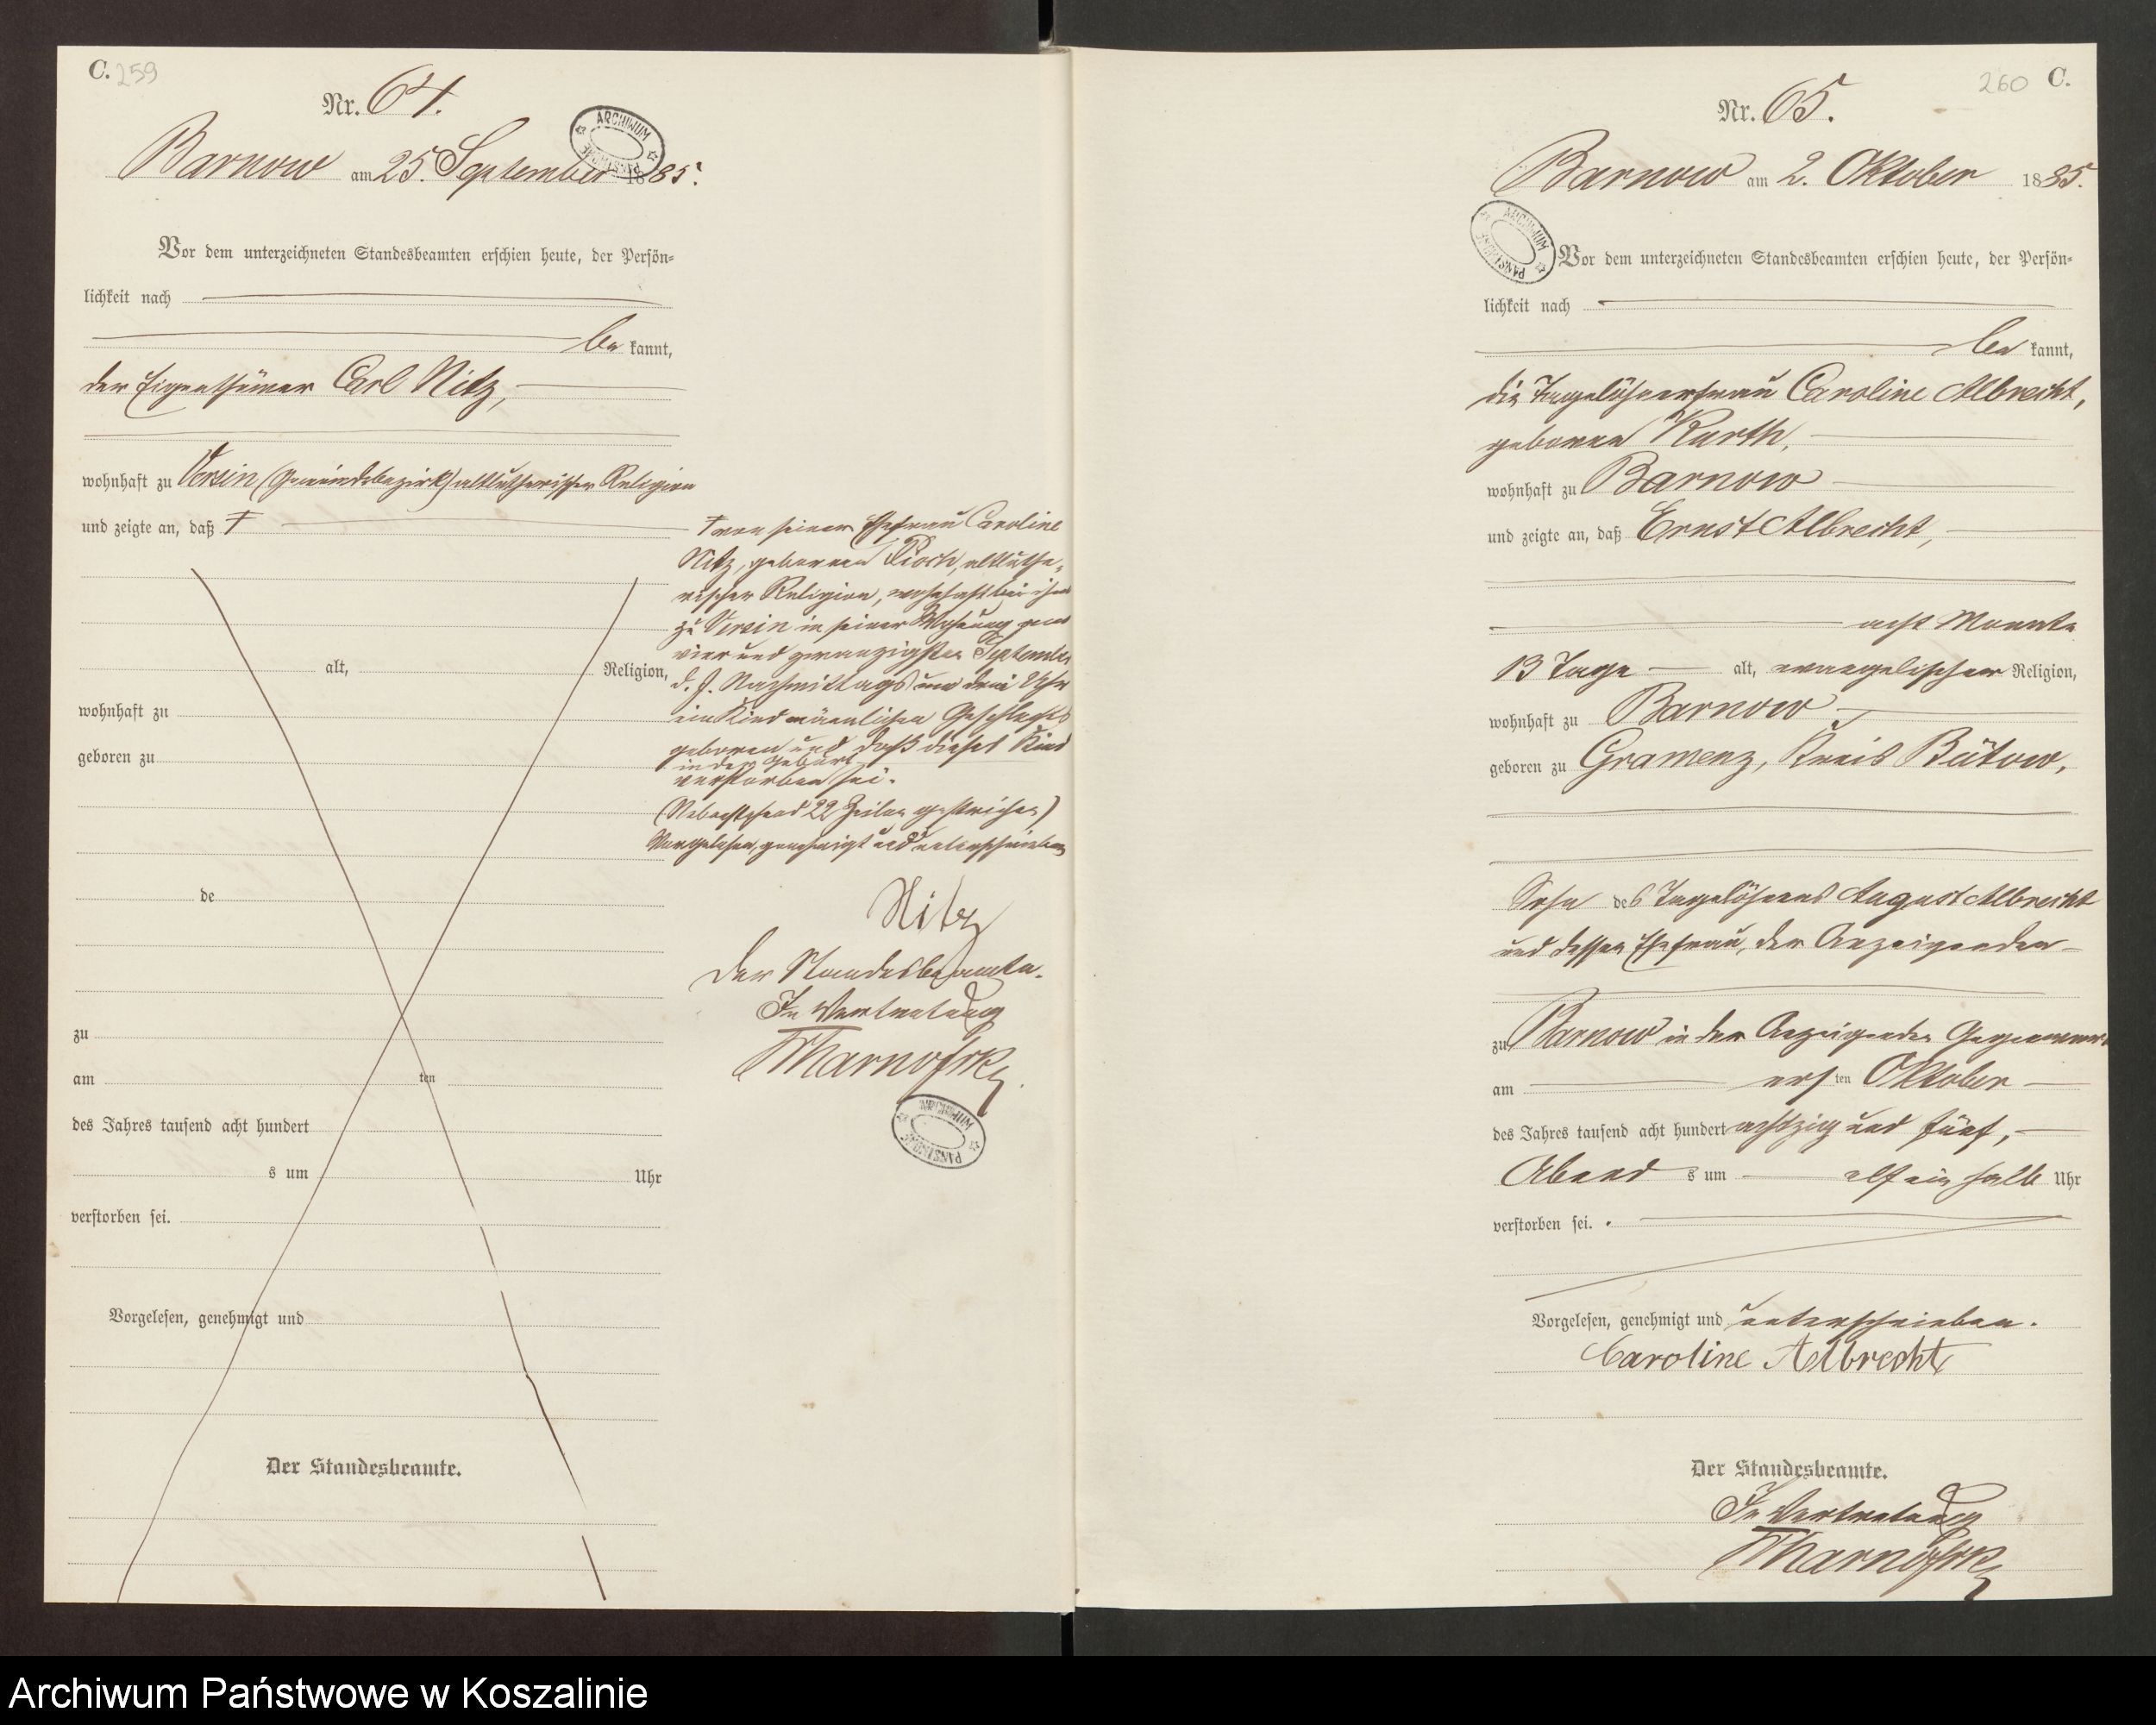 C. 259
Nr. 64.
ARCHIWUM PAŃSTWOWE
Barnow am 25. September 1885.
Vor dem unterzeichneten Standesbeamten erschien heute, der Persön-
lichkeit nach
be kannt,
der Eigenthümer Carl Nitz,
wohnhaft zu Versin (Gemeindebezirk) altlutherischer Religion
und zeigte an, daß †
† von seiner Ehefrau Caroline
Nitz, geborenen Pioch, altluthe-
rischer Religion, wohnhaft bei ihm
zu Versin in seiner Wohnung am
vier und zwanzigsten September
d. J. Nachmittags um drei Uhr
ein Kind männlichen Geschlechts
geboren und daß dieses Kind
in der Geburt
verstorben sei.
(Nebenstehend 22 Zeilen gestrichen)
Vorgelesen, genehmigt und unterschrieben
Nitz
Der Standesbeamte.
In Vertretung
ARCHIWUM PAŃSTWOWE
alt, Religion,
wohnhaft zu
geboren zu
de
zu
am ten
des Jahres tausend acht hundert
s um Uhr
verstorben sei.
Vorgelesen, genehmigt und
Der Standesbeamte.
260 C.
Nr. 65.
Barnow am 2. Oktober 1885.
ARCHIWUM PAŃSTWOWE
Vor dem unterzeichneten Standesbeamten erschien heute, der Persön-
lichkeit nach
be kannt,
die Tagelöhnerfrau Caroline Albrecht,
geborene Kurth,
wohnhaft zu Barnow
und zeigte an, daß Ernst Albrecht,
acht Monate
13 Tage alt, evangelischer Religion,
wohnhaft zu Barnow
geboren zu Gramenz, Kreis Bütow,
Sohn des Tagelöhners August Albrecht
und dessen Ehefrau, der Anzeigenden
zu Barnow in der Anzeigenden Gegenwart
am ersten Oktober
des Jahres tausend acht hundert achtzig und fünf,
Abend s um elf ein halb Uhr
verstorben sei.
Vorgelesen, genehmigt und unterschrieben.
Caroline Albrecht
Der Standesbeamte.
In Vertretung
Archiwum Państwowe w Koszalinie